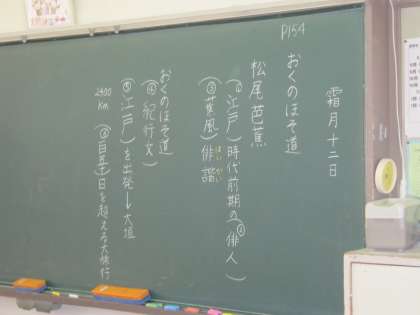 霜月十二日
P154
おくのほそ道
松尾芭蕉
①(江戸)時代前期の②(俳人)
③(蕉風)俳諧
はいかい
おくのほそ道
④(紀行文)
⑤(江戸)を出発→大垣
2400km ⑥(百五十)日を超える大旅行